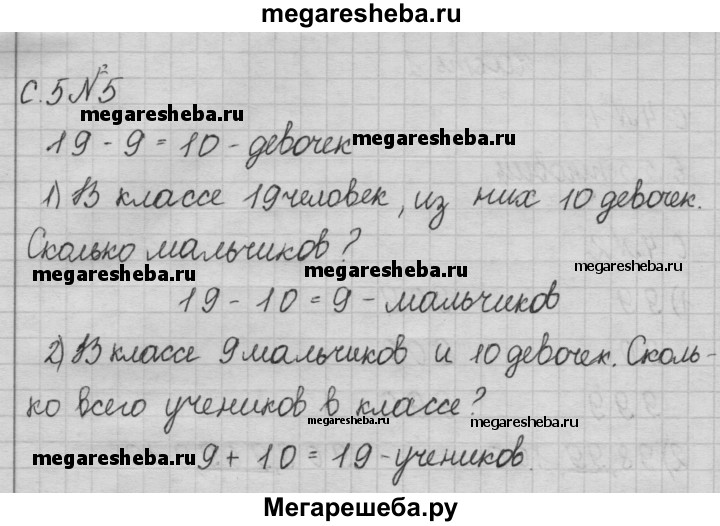 megaresheba.ru
С.5 №5
megaresheba.ru
19 - 9 = 10 - девочек megaresheba.ru
megaresheba.ru
1) В классе 19 человек, из них 10 девочек.
Сколько мальчиков?
megaresheba.ru megaresheba.ru megaresheba.ru
19 - 10 = 9 - мальчиков
2) В классе 9 мальчиков и 10 девочек. Сколь-
ко всего учеников в классе?
megaresheba.ru megaresheba.ru
megaresheba.ru 9 + 10 = 19 - учеников.
Мегарешеба.ру